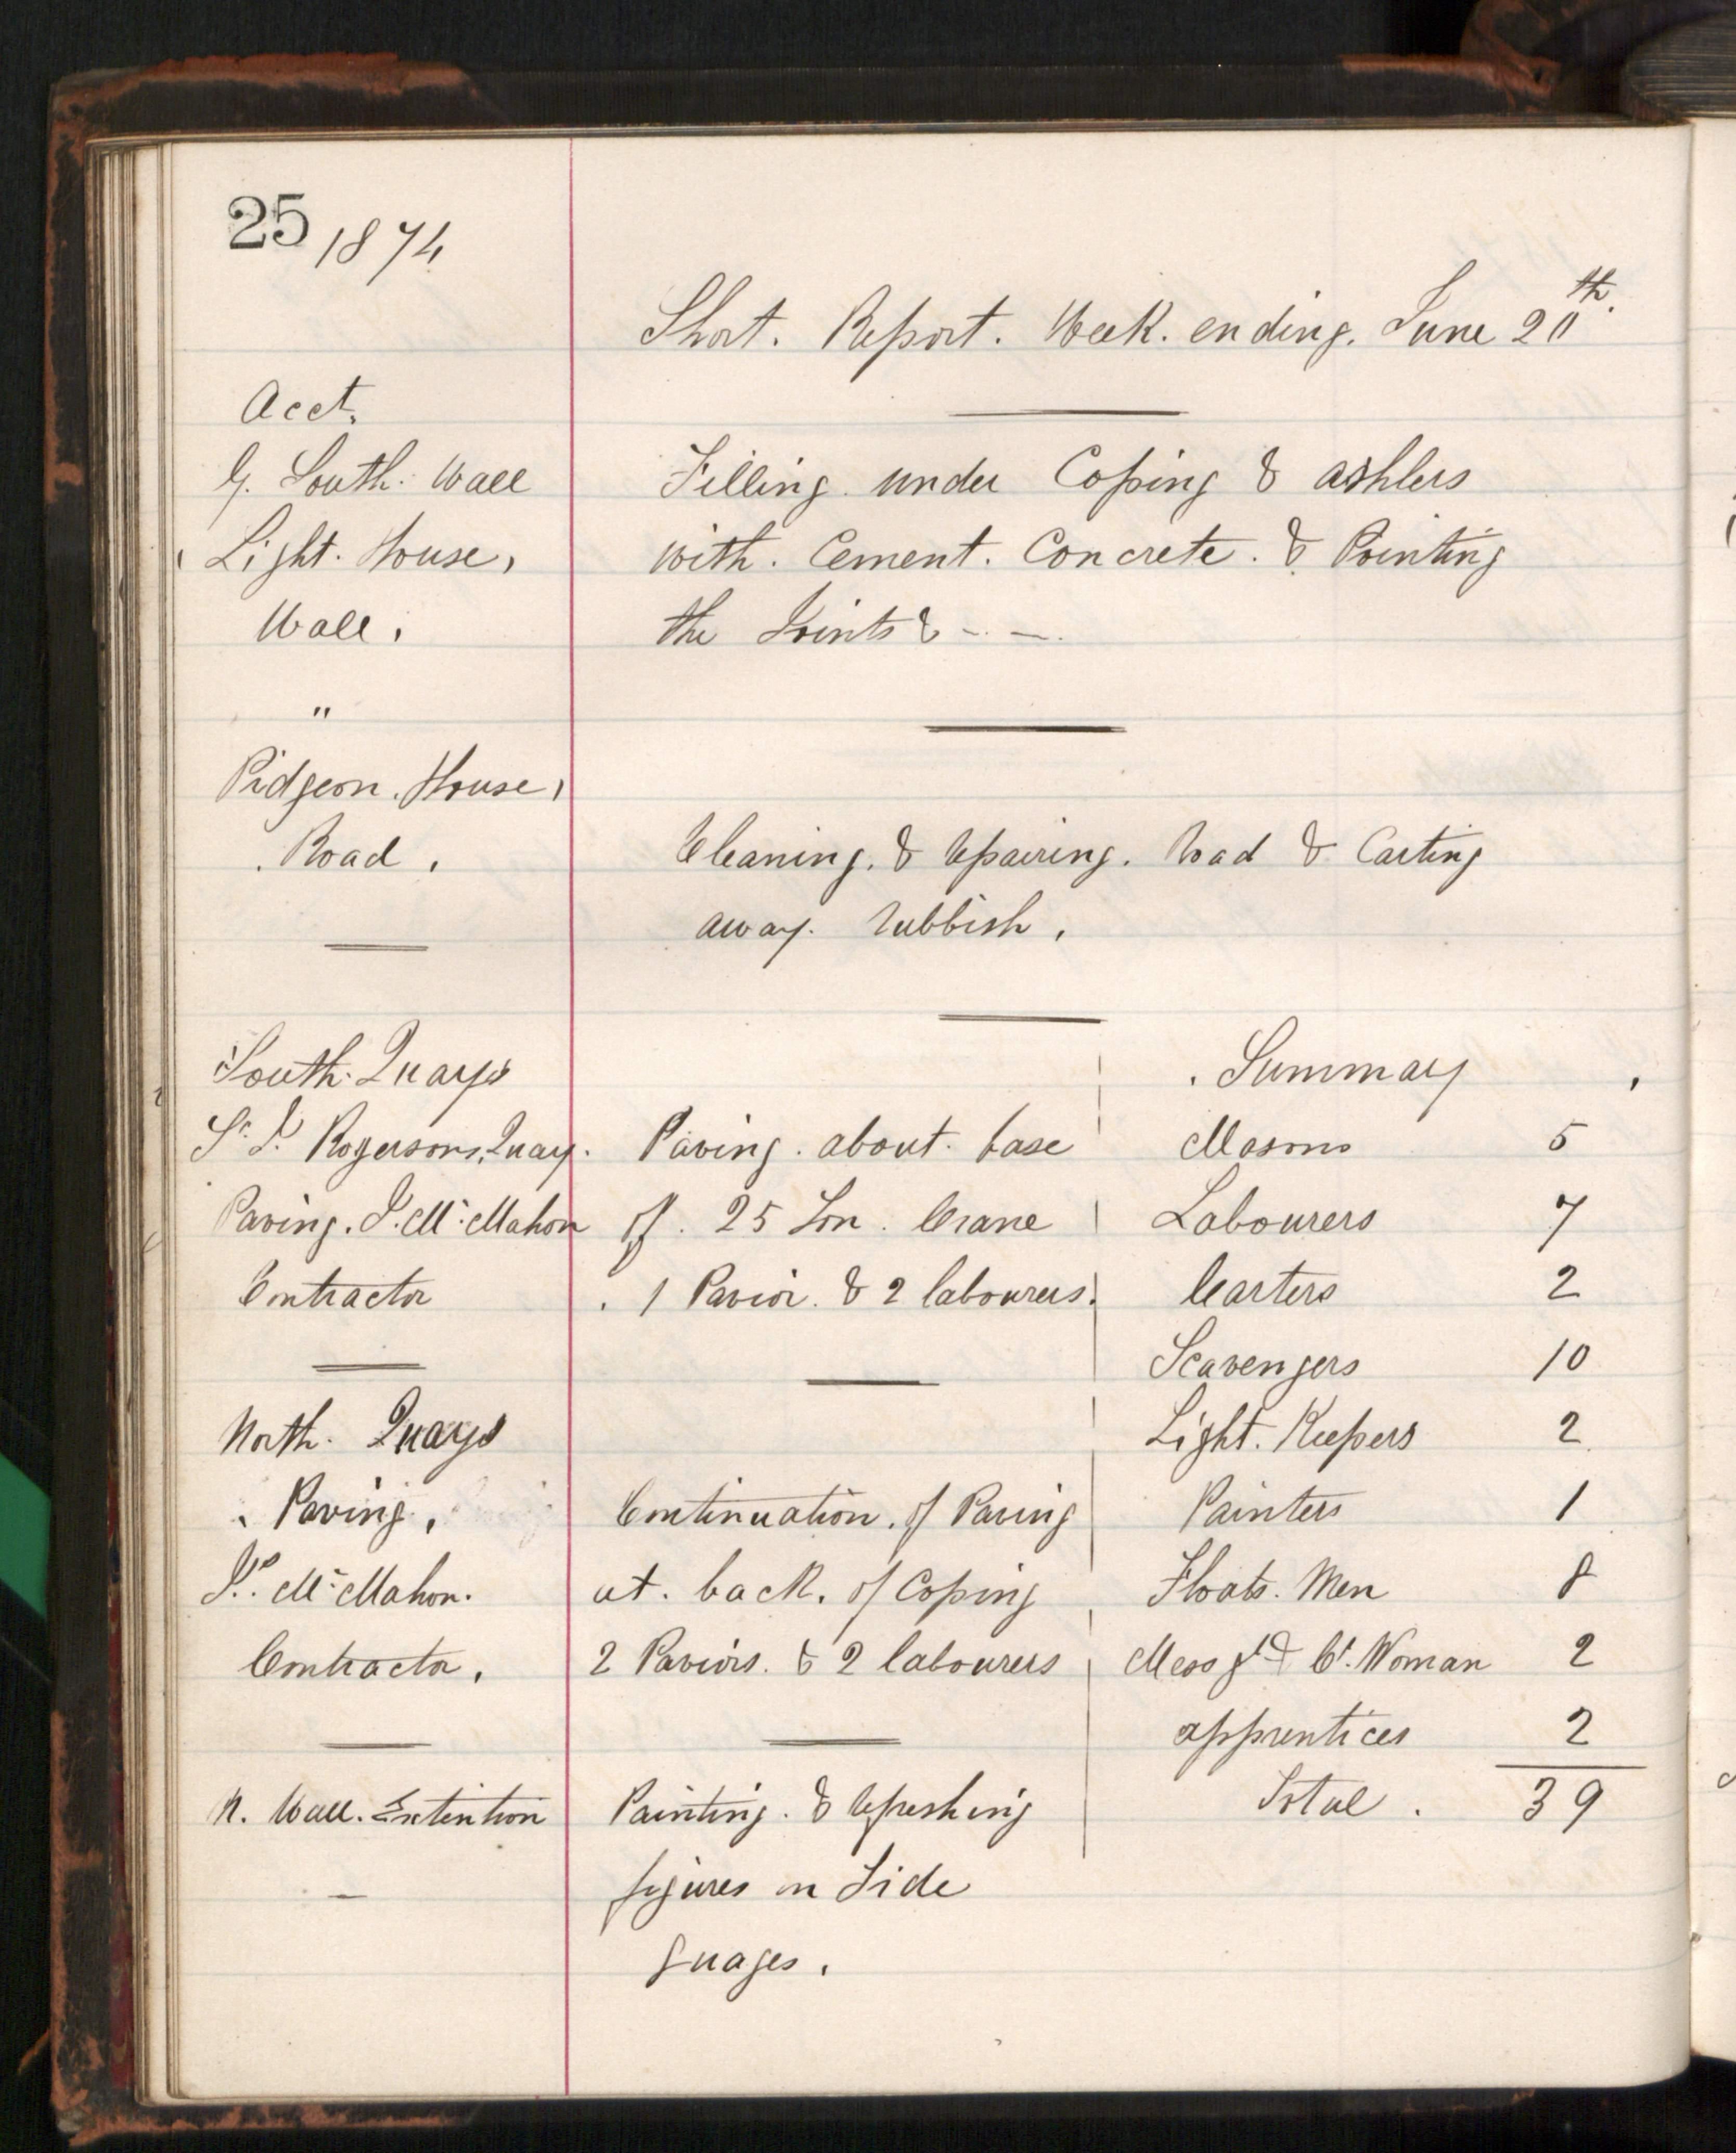 25 1874
Short. Report. Week. ending. June 20th.
Acct.
G. South. Wall
Filling under Coping & ashlers
Light. House,
with. Cement. Concrete. & Pointing
Wall.
the Joints & - -
"
Pidgeon. House,
Road.
Cleaning. & repairing. road & Carting
away. rubbish.
South. Quays
Summary
Sr. J. Rogersons, Quay.
Paving. about. base
Masons 5
Paving. J. Mc. Mahon
of. 25 Ton. Crane
Labourers 7
Contractor
1 Pavior. & 2 labourers.
Carters 2
Scavengers 10
North. Quays
Light. Keepers 2
Paving.
Continuation. of Paving
Painters 1
J. Mc. Mahon.
at. back. of Coping
Floats. Men 8
Contractor.
2 Paviors. & 2 labourers
Messgr & Ct. Woman 2
apprentices 2
N. Wall. Extention
Painting. & refreshing
Total. 39
figures on Tide
guages.